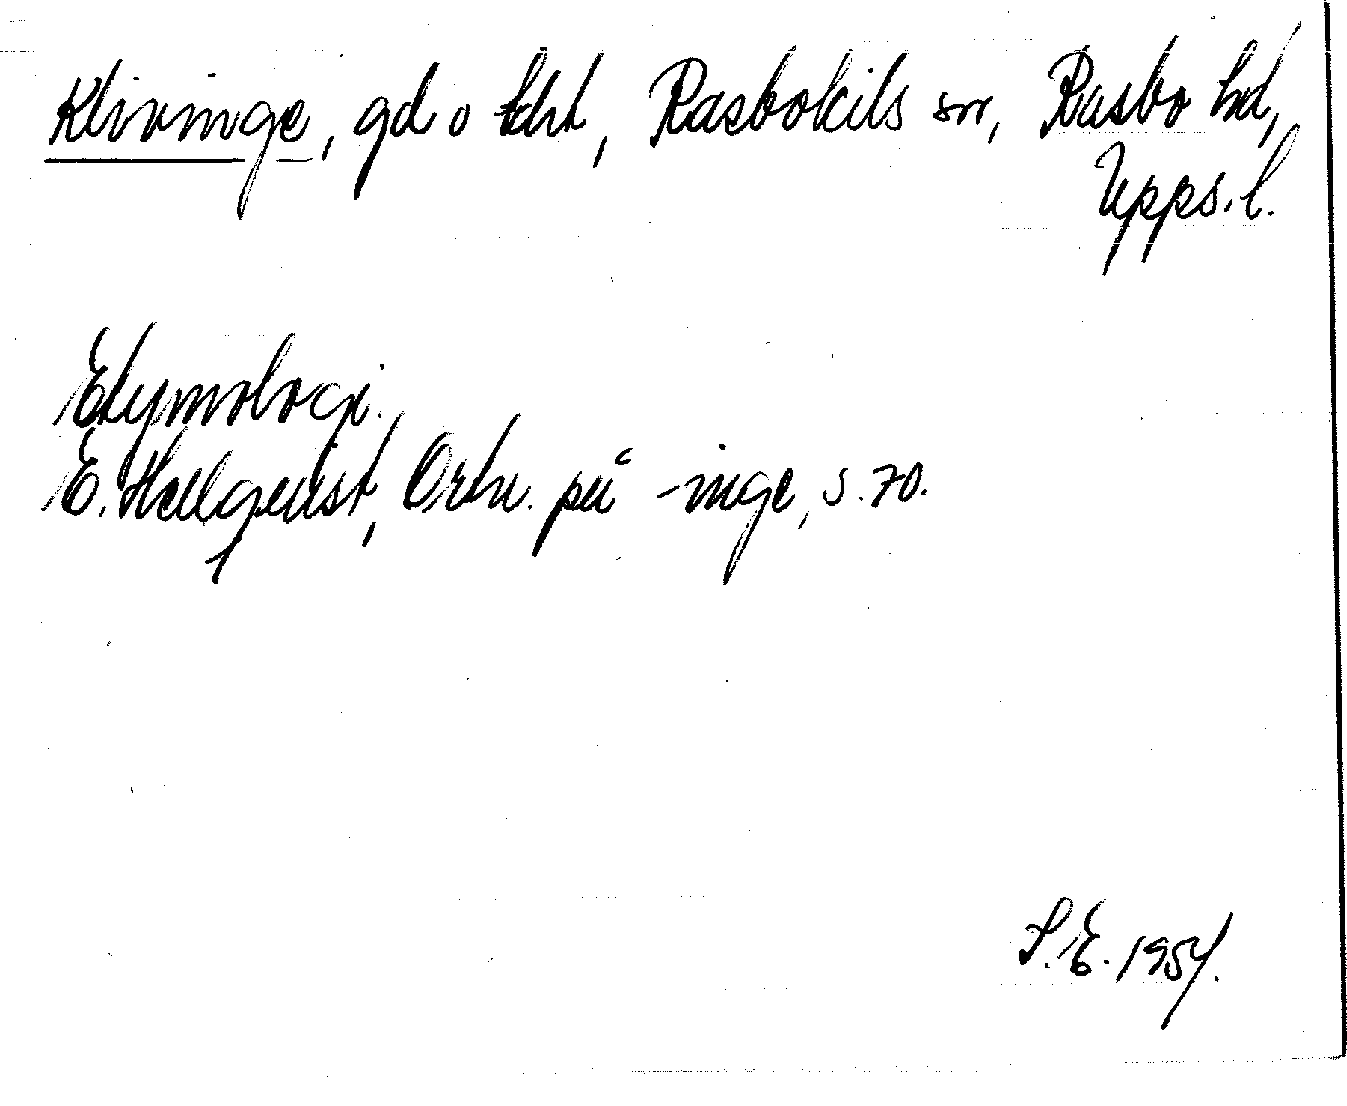 Klivinge, gd o tdrt, Rasbokils sn, Rasbo hd,
Upps. l.
Etymologi.
E. Hellquist, Ortn. på -inge, s. 70.
S. E. 1954.